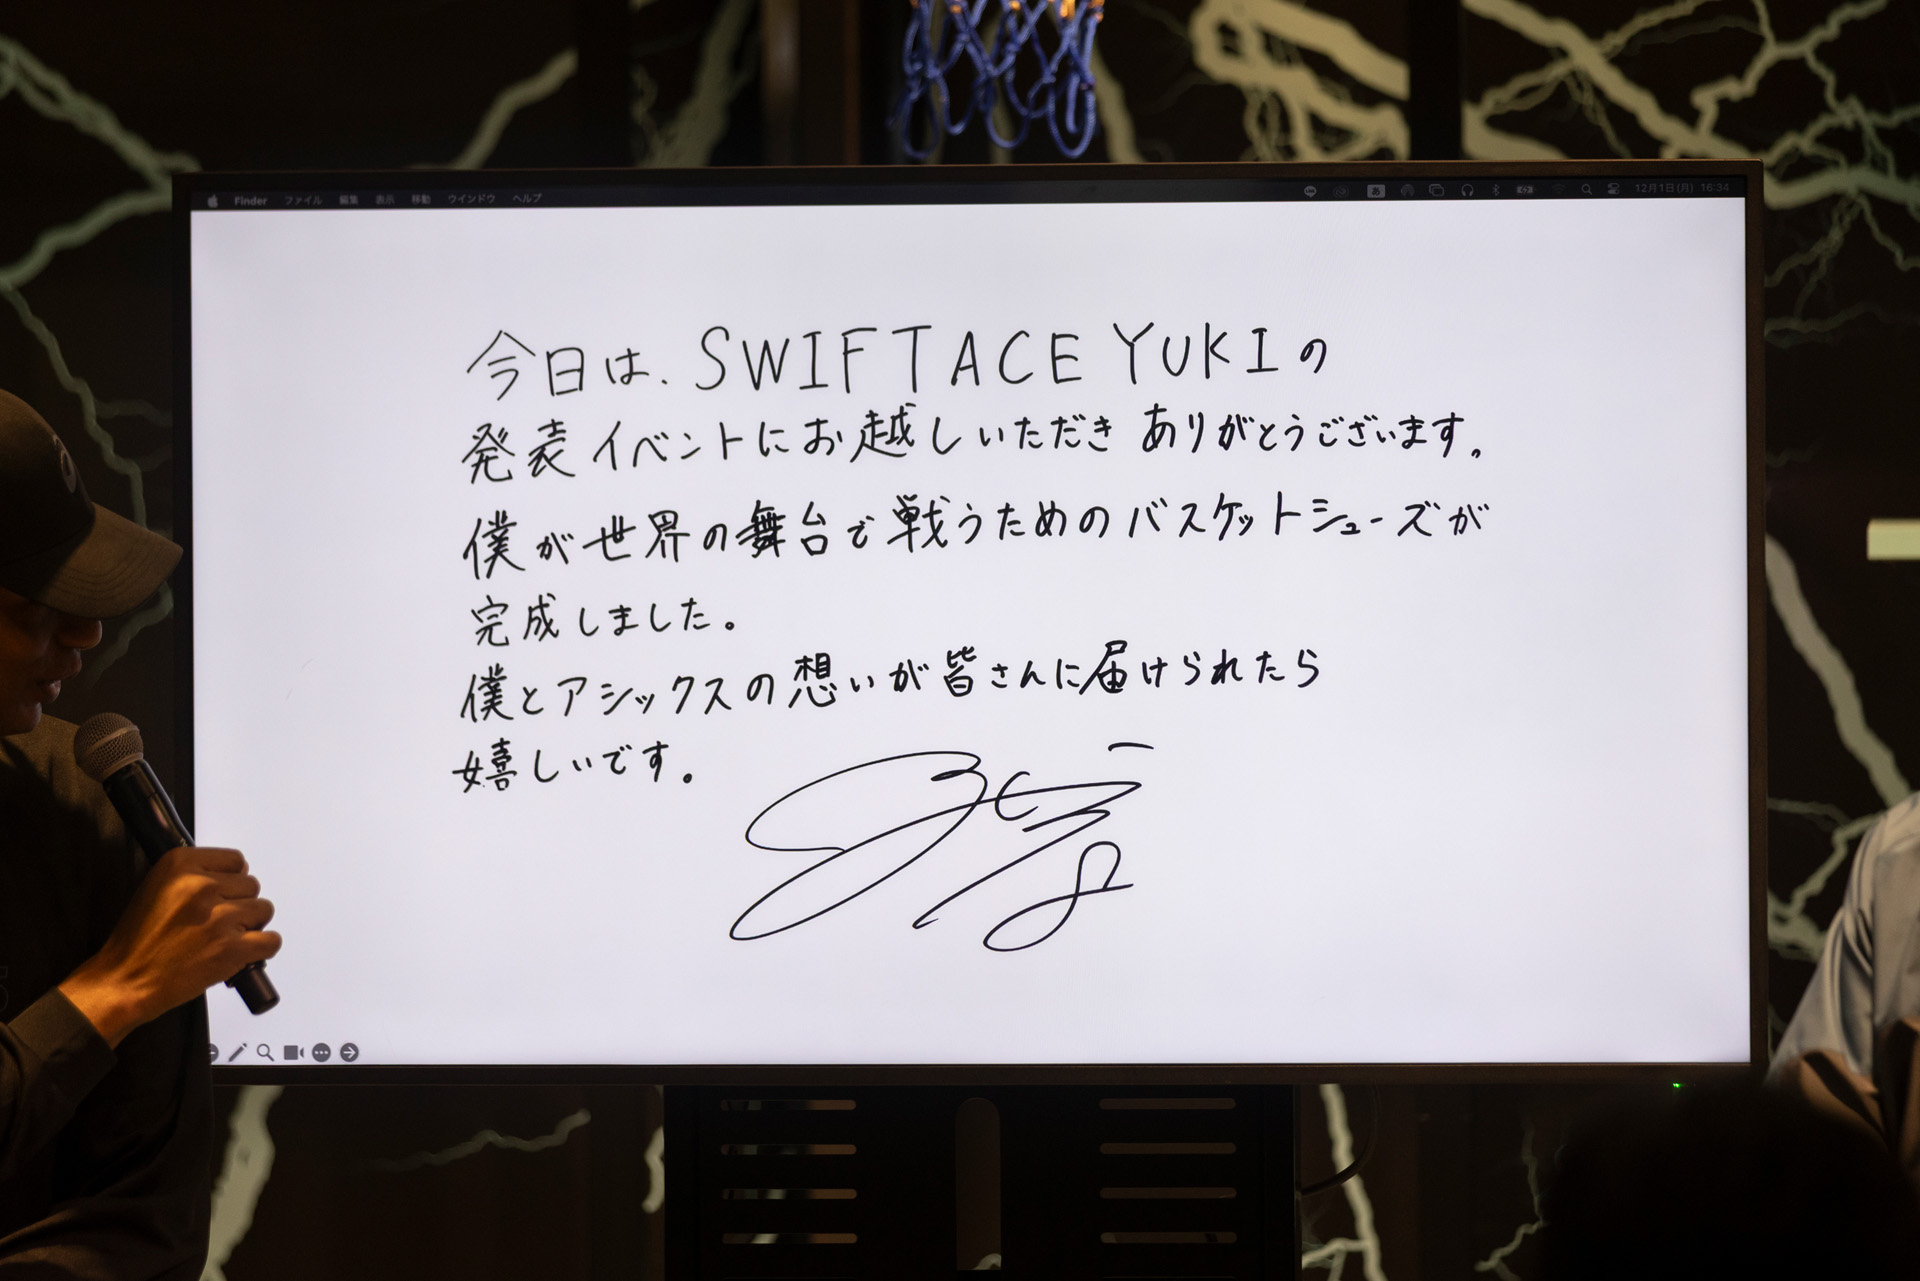 Finder ファイル 編集 表示 移動 ウインドウ ヘルプ
あ 12月1日(月) 16:34
今日は、SWIFTACE YUKIの
発表イベントにお越しいただき ありがとうございます。
僕が世界の舞台で戦うためのバスケットシューズが
完成しました。
僕とアシックスの想いが皆さんに届けられたら
嬉しいです。